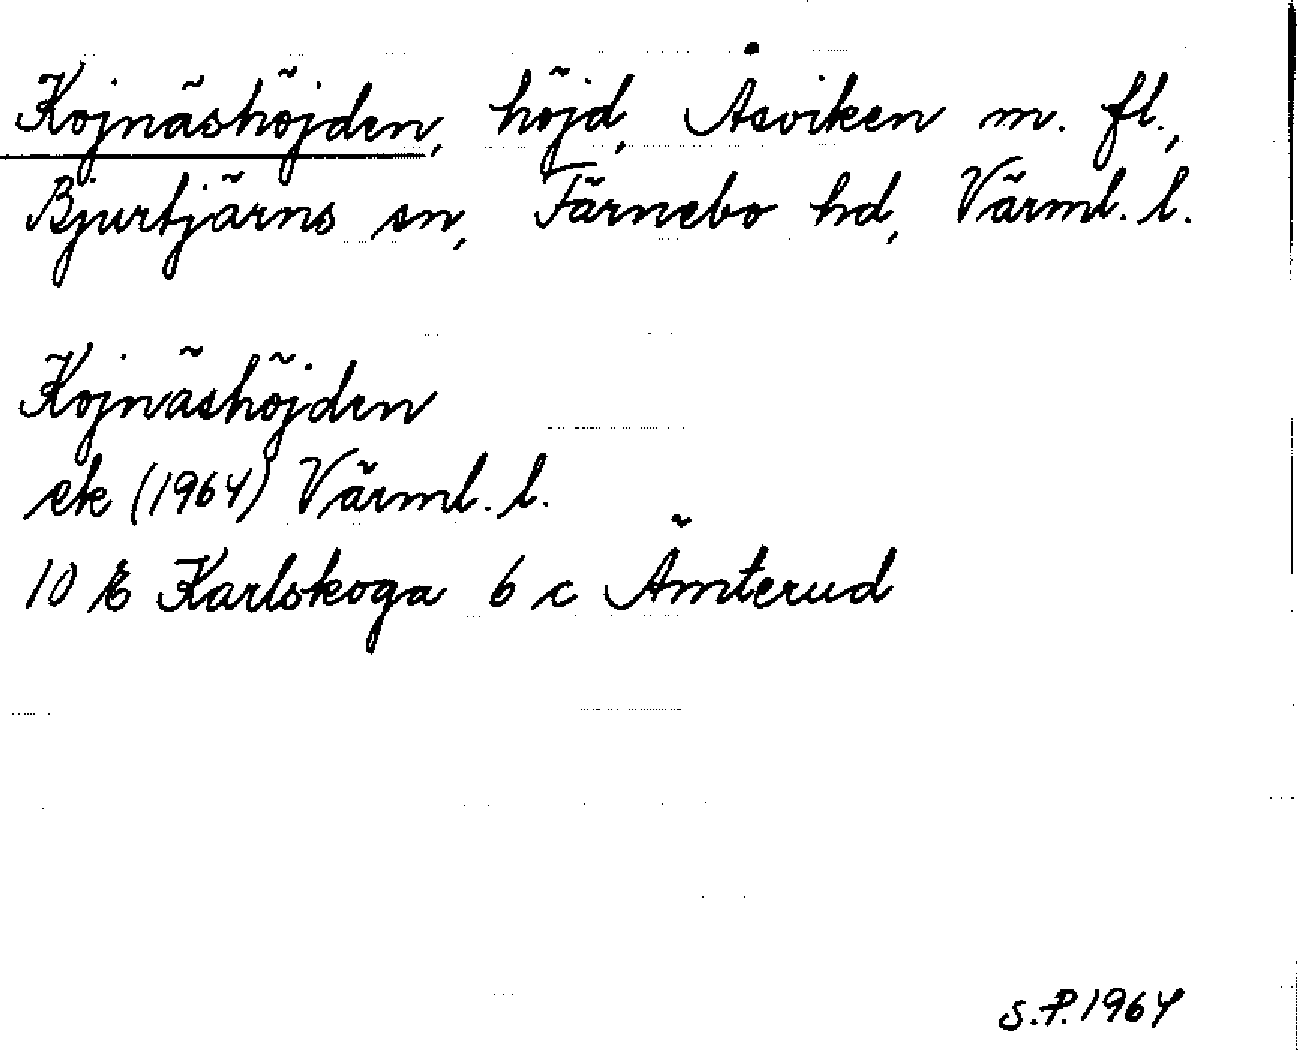 Kojnäshöjden, höjd, Åsviken m. fl.,
Bjurtjärns sn, Färnebo hd, Värml. l.
Kojnäshöjden
ek (1964) Värml. l.
10 E Karlskoga 6 c Ämterud
S.P. 1964